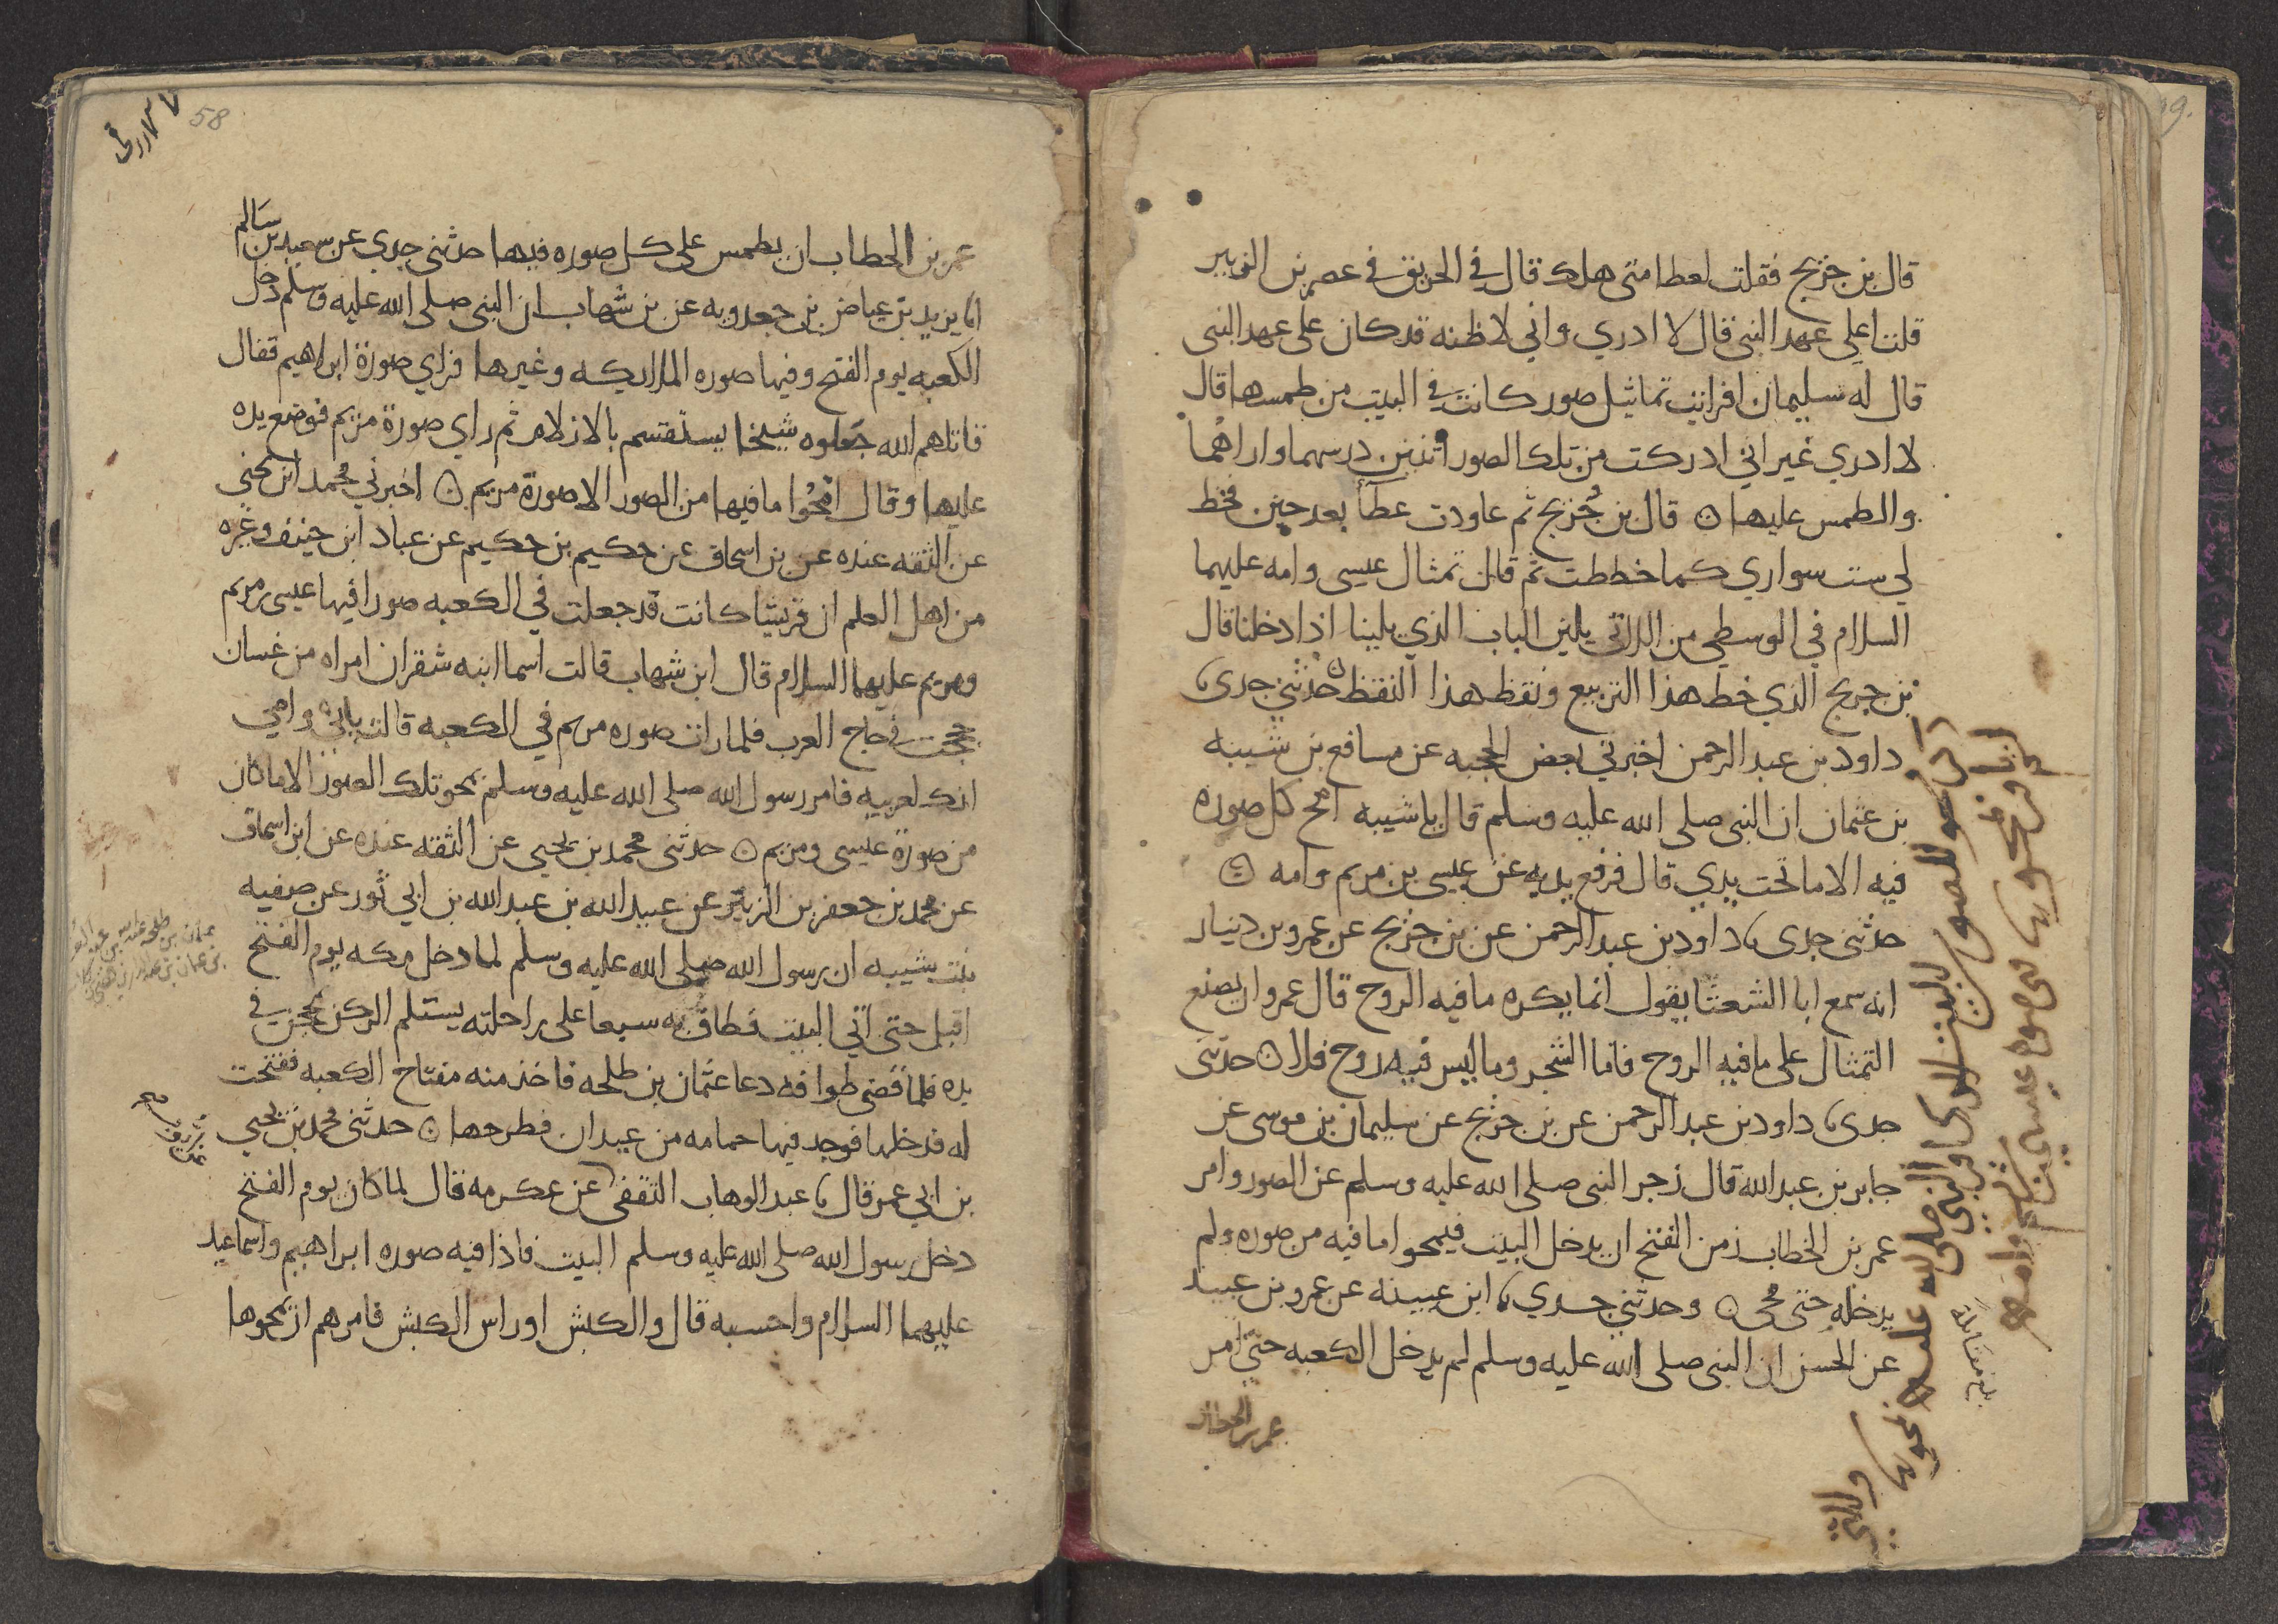 قال بن جريج فقلت لعطا متى هلك قال في الحريق في عصر بن الزبير
قلت اعلى عهد النبي قال لا ادري واني لاظنه قد كان على عهد النبي
قال له سليمان افرايت تماثيل صور كانت في البيت من طمسها قال
لا ادري غير اني ادركت من تلك الصور اثنين درسهما واراهما
والطمس عليها ن قال بن جريج ثم عاودت عطا بعد حين فخط
لي ست سواري كما خططت ثم قال تمثال عيسى وامه عليهما
السلام في الوسطي من اللاتي يلين الباب الذي يلينا اذا دخلنا قال
بن جريج الذي خط هذا التربيع ونقط هذا النقط ن حدثني جدي
داود بن عبد الرحمن اخبرني بعض الحجبه عن مسافع بن شيبه
بن عثمان ان النبي صلى الله عليه وسلم قال يا شيبه امح كل صوره
فيه الا ما تحت يدي قال فرفع يديه عن عيسى بن مريم وامه
حدثني جدي داود بن عبد الرحمن عن بن جريج عن عمرو بن دينار
انه سمع ابا الشعثا يقول انما يكره ما فيه الروح قال عمرو ان يصنع
التمثال على ما فيه الروح فاما الشجر وما ليس فيه روح فلا ن حدثني
جدي داود بن عبد الرحمن عن بن جريج عن سليمان بن موسى عن
جابر بن عبد الله قال زجر النبي صلى الله عليه وسلم عن الصور وامر
عمر بن الخطاب زمن الفتح ان يدخل البيت فيمحوا ما فيه من صوره ولم
يدخله حتى محي ن وحدثني جدي ابن عيينه عن عمرو بن عبيد
عن الحسن ان النبي صلى الله عليه وسلم لم يدخل الكعبه حتى امر
عمر بن الخطاب
بلغ مقابلة
58
عمر بن الخطاب ان يطمس على كل صوره فيها حدثني جدي عن سعيد بن سالم
انا يزيد بن عياض بن جعدوبه عن بن شهاب ان النبي صلى الله عليه وسلم دخل
الكعبه يوم الفتح وفيها صوره الملايكه وغيرها فراي صورة ابراهيم فقال
قاتلهم الله جعلوه شيخا يستقسم بالازلام ثم راي صورة مريم فوضع يده
عليها وقال امحوا ما فيها من الصور الا صورة مريم ن اخبرني محمد ابن يحيى
عن الثقه عنده عن بن اسحاق عن حكيم بن حكيم عن عباد ابن حنيف وغيره
من اهل العلم ان قريشا كانت قد جعلت في الكعبه صورا فيها عيسى بن مريم
ومريم عليهما السلام قال ابن شهاب قالت اسما ابنه شقران امراه من غسان
حجت في حاج العرب فلما رات صوره مريم في الكعبه قالت بابي وامي
انك لعربيه فامر رسول الله صلى الله عليه وسلم بمحو تلك الصور الا ما كان
من صورة عيسى ومريم ن حدثني محمد بن يحيى عن الثقه عنده عن ابن اسحاق
عن محمد بن جعفر بن الزبير عن عبيد الله بن عبد الله بن ابي ثور عن صفيه
بنت شيبه ان رسول الله صلى الله عليه وسلم لما دخل مكه يوم الفتح
اقبل حتى اتي البيت فطاف به سبعا على راحلته يستلم الركن بمحجن في
يده فلما قضى طوافه دعا عثمان بن طلحه فاخذ منه مفتاح الكعبه ففتحت
له فدخلها فوجد فيها حمامه من عيدان فطرحها ن حدثني محمد بن يحيى
بن ابي عمر قال عبد الوهاب الثقفي عن عكرمه قال لما كان يوم الفتح
دخل رسول الله صلى الله عليه وسلم البيت فاذا فيه صوره ابراهيم واسماعيل
عليهما السلام واحسبه قال والكبش او راس الكبش فامرهم ان يمحوها